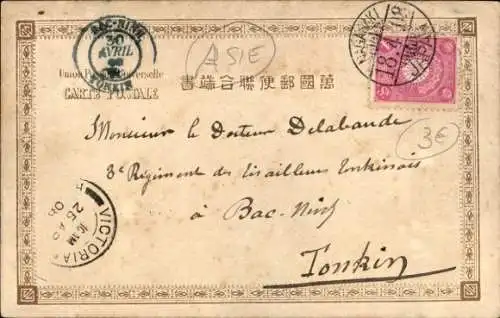 BAC-NINH
30
AVRIL
TONKIN
ASIE
Union Postale Universelle
CARTE POSTALE
萬國郵便聯合端書
NAGASAKI
18
JAPAN
3€
Monsieur le Docteur Delabaude
3e Régiment des Tirailleurs Tonkinois
à Bac-Ninh
Tonkin
VICTORIA
25